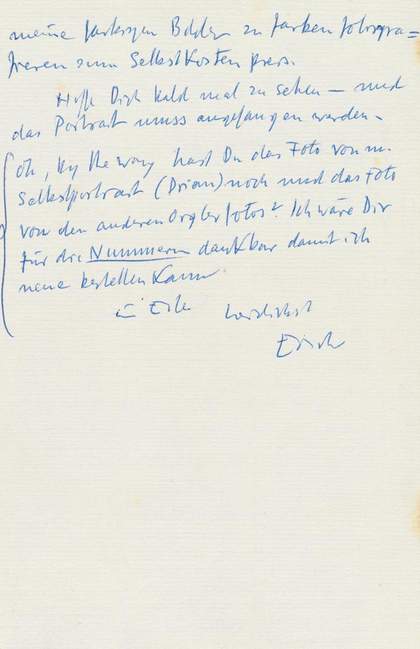 meine farbigen Bilder zu farben fotogra=
fieren zum Selbstkosten preis.
Hoffe Dich bald mal zu sehen — und
das Portrait muss angefangen werden.
Oh, by the way hast Du das Foto von m.
Selbstportrait (Drian) noch und das Foto
von den anderen Orgler fotos? Ich wäre Dir
für die Nummern dankbar damit ich
neue bestellen kann.
in Eile herzlichst